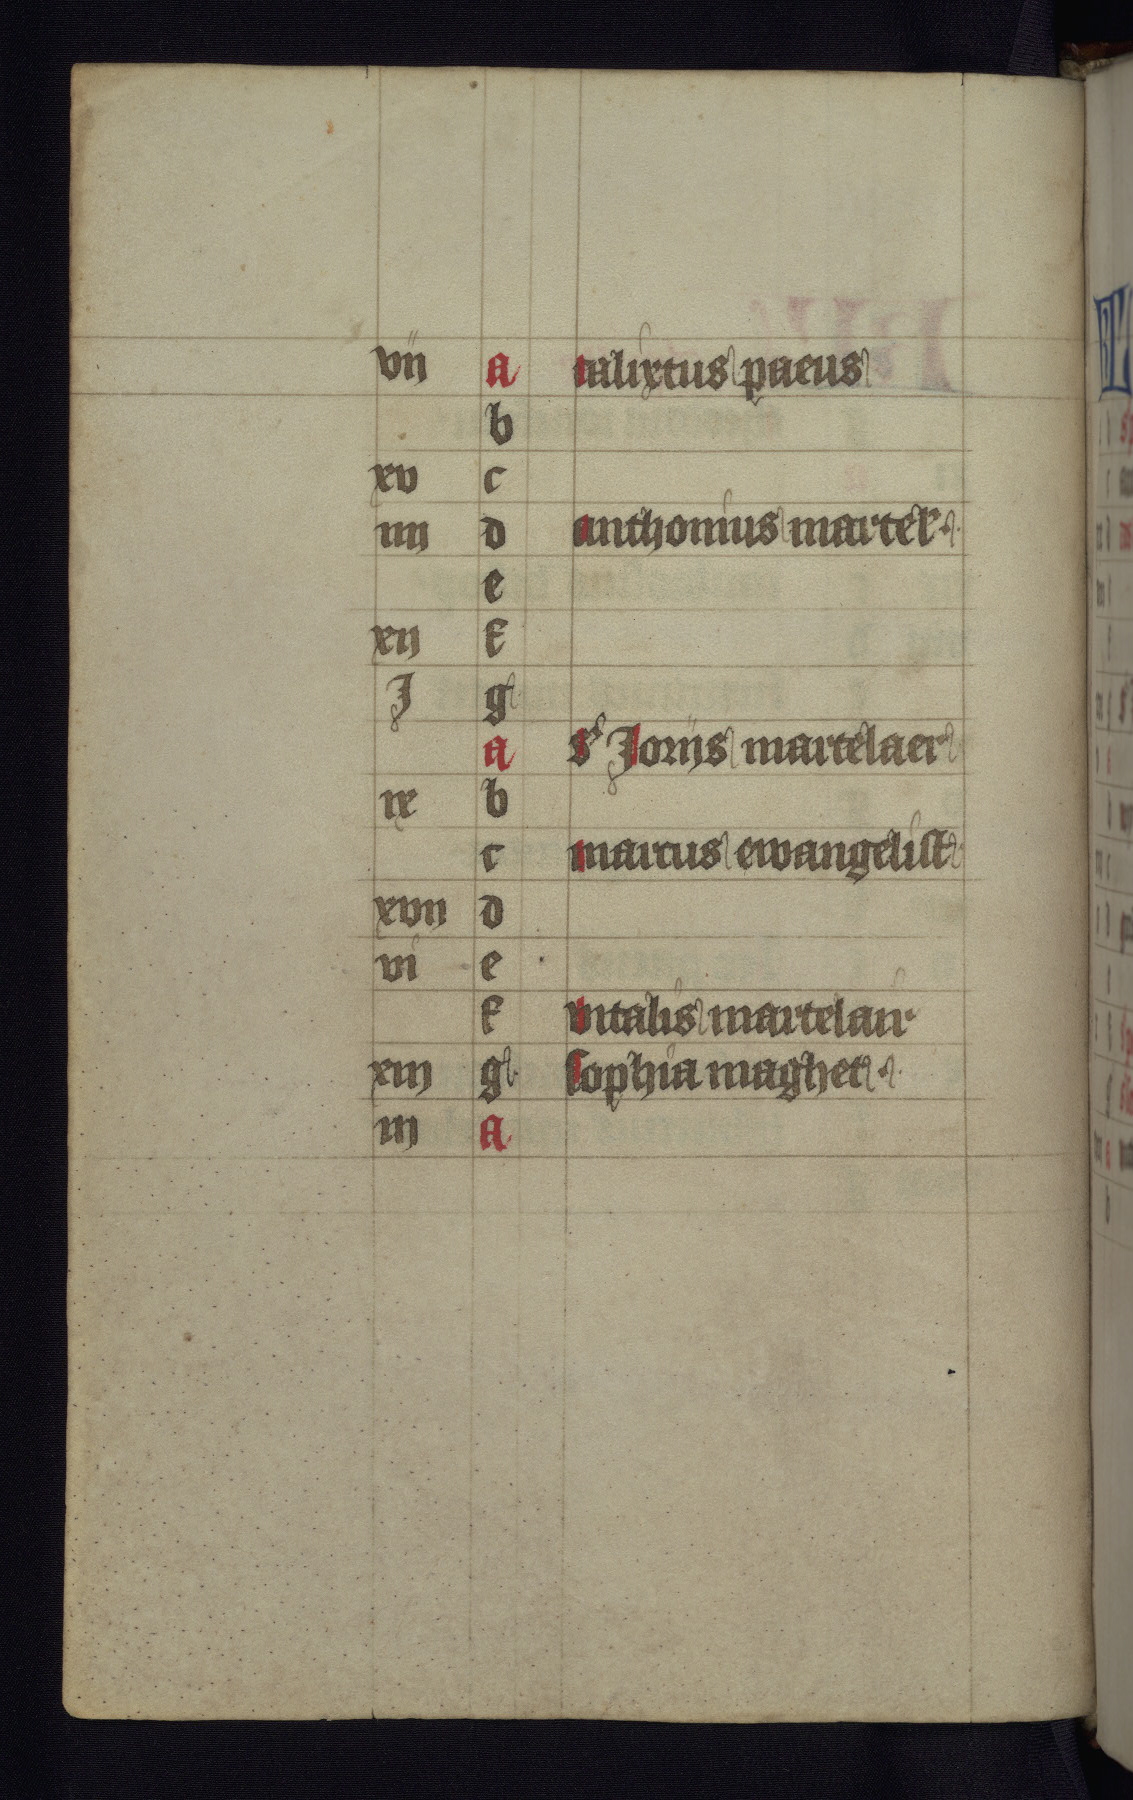 vii a calixtus paeus
b
xv c
iiij d anthonius marteler
e
xij f
J g
a Sr Joriis martelaer
ix b
c marcus ewangelist
xvij d
vi e
f vitalis martelair
xiiij g sophia maghet
iij a